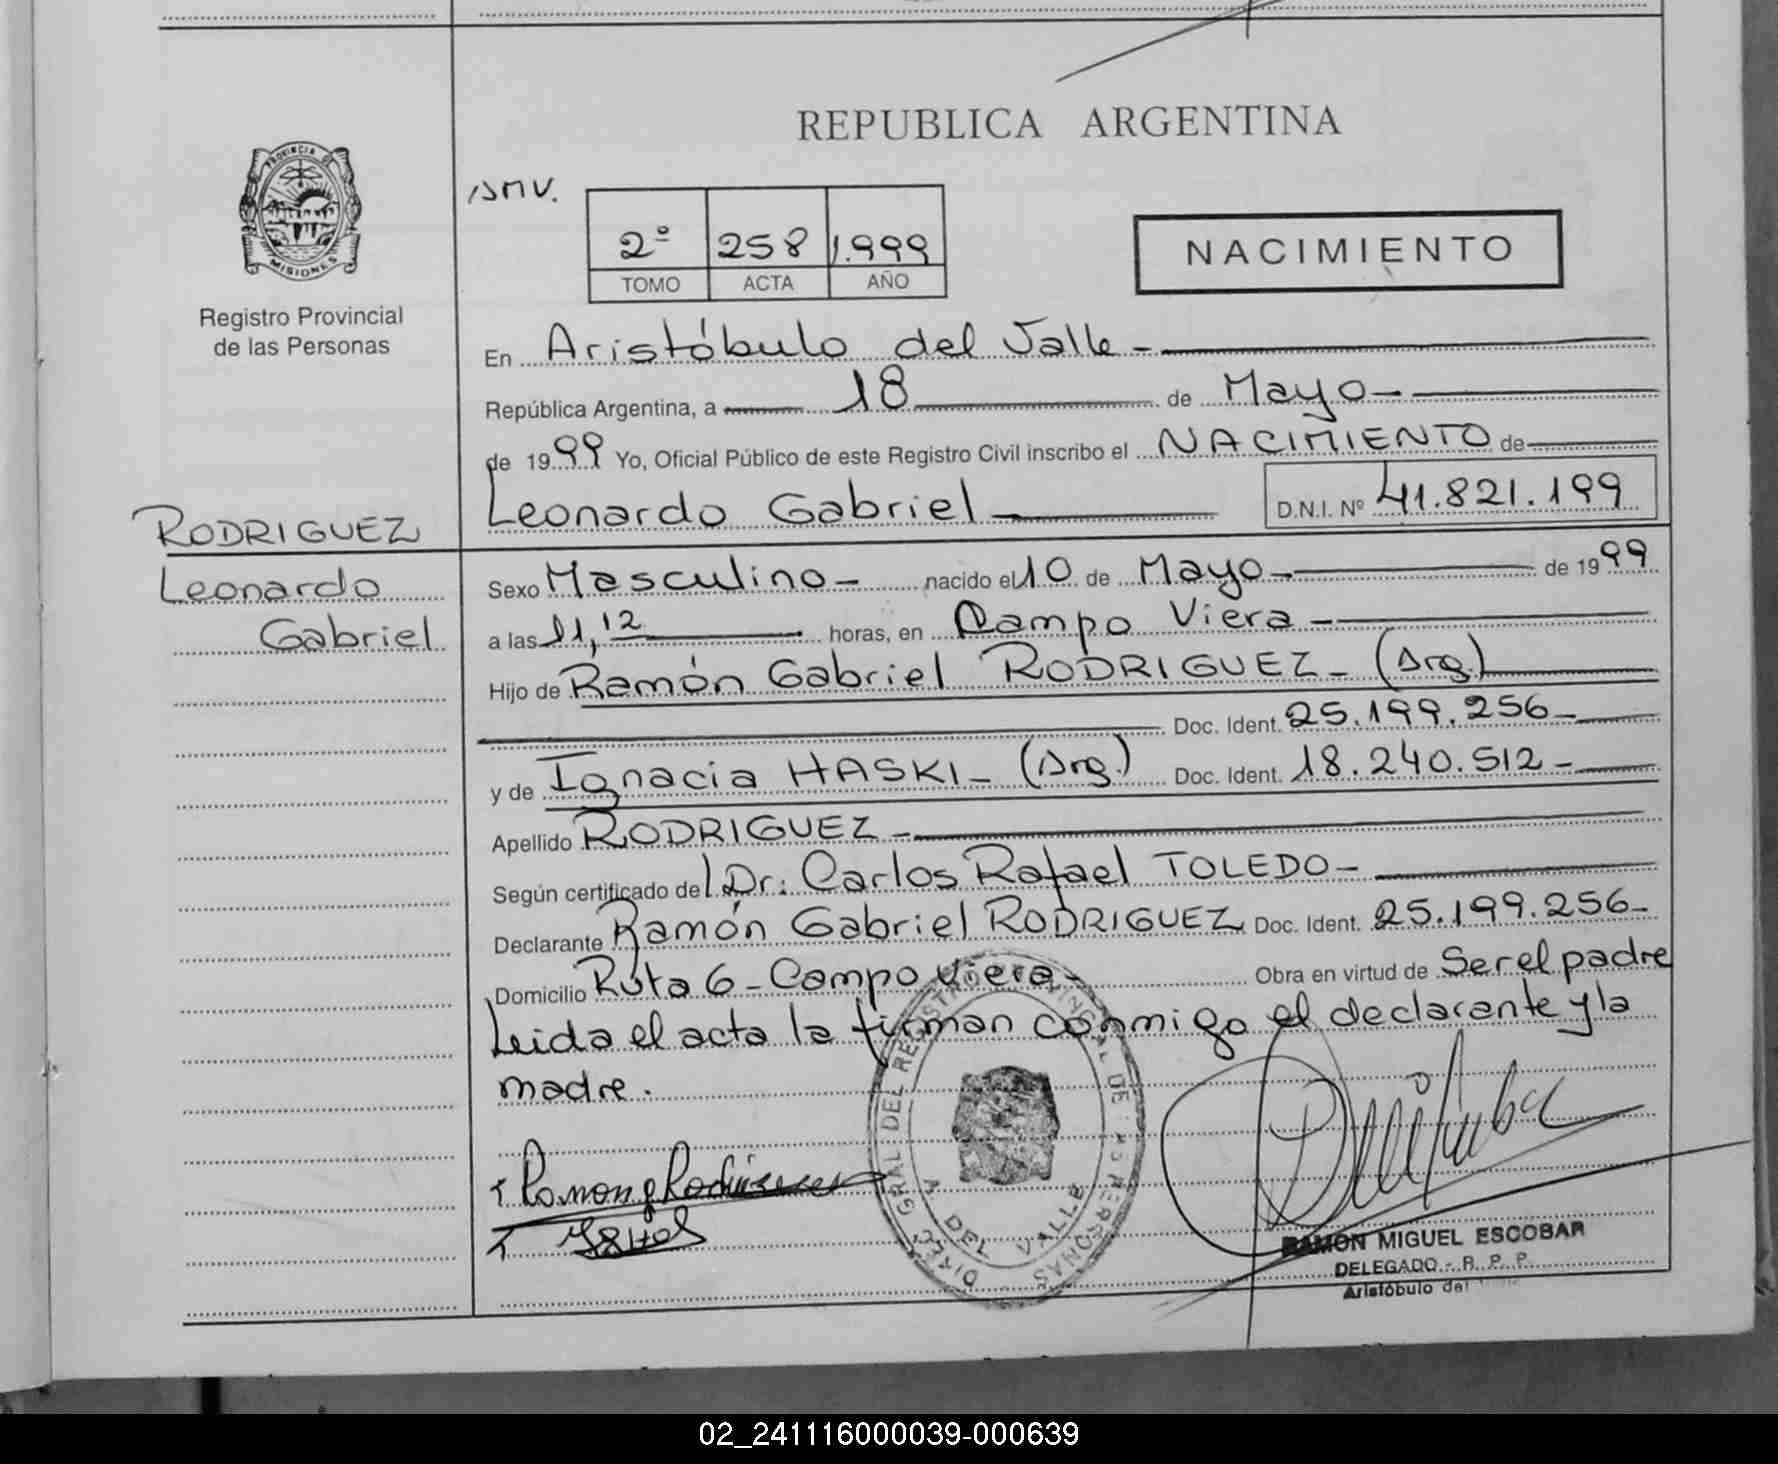 REPUBLICA ARGENTINA
PROVINCIA DE
MISIONES
Registro Provincial
de las Personas
2º 258 1.999
TOMO ACTA AÑO
NACIMIENTO
En Aristóbulo del Valle -
República Argentina, a 18 de Mayo -
de 1999 Yo, Oficial Público de este Registro Civil inscribo el NACIMIENTO de
Leonardo Gabriel D.N.I. Nº 41.821.199
RODRIGUEZ
Leonardo
Gabriel
Sexo Masculino - nacido el 10 de Mayo - de 1999
a las 11,12 horas, en Campo Viera -
Hijo de Ramón Gabriel RODRIGUEZ - (Arg.)
Doc. Ident. 25.199.256 -
y de Ignacia HASKI - (Arg.) Doc. Ident. 18.240.512 -
Apellido RODRIGUEZ -
Según certificado del Dr: Carlos Rafael TOLEDO -
Declarante Ramón Gabriel RODRIGUEZ Doc. Ident. 25.199.256 -
Domicilio Ruta 6 - Campo Viera - Obra en virtud de Ser el padre
Leida el acta la firman conmigo el declarante y la
madre.
DEL REGISTRO PROVINCIAL DE LAS PERSONAS
DEL VALLE
RAMON MIGUEL ESCOBAR
DELEGADO - R. P. P.
Aristóbulo del
02_241116000039-000639